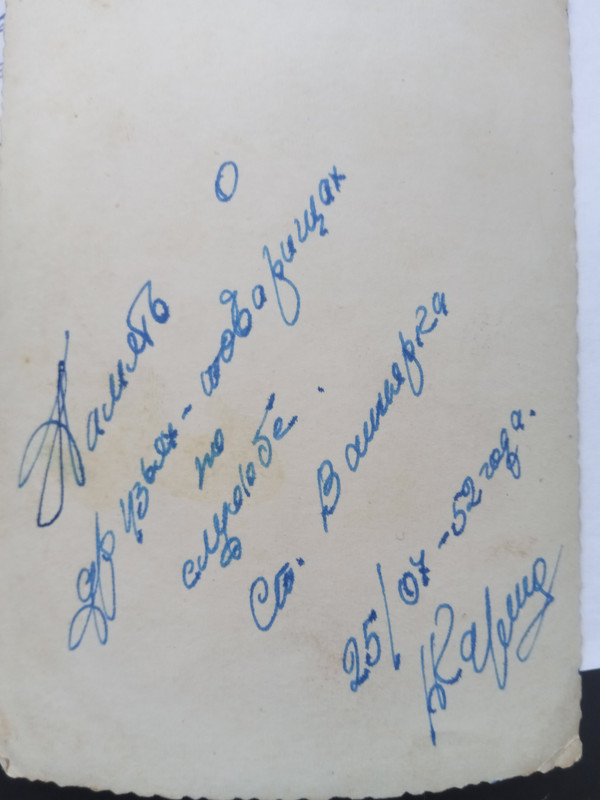 Память о
друзьях-товарищах
по
службе.
Ст. Вапнярка
25/07-52 года.